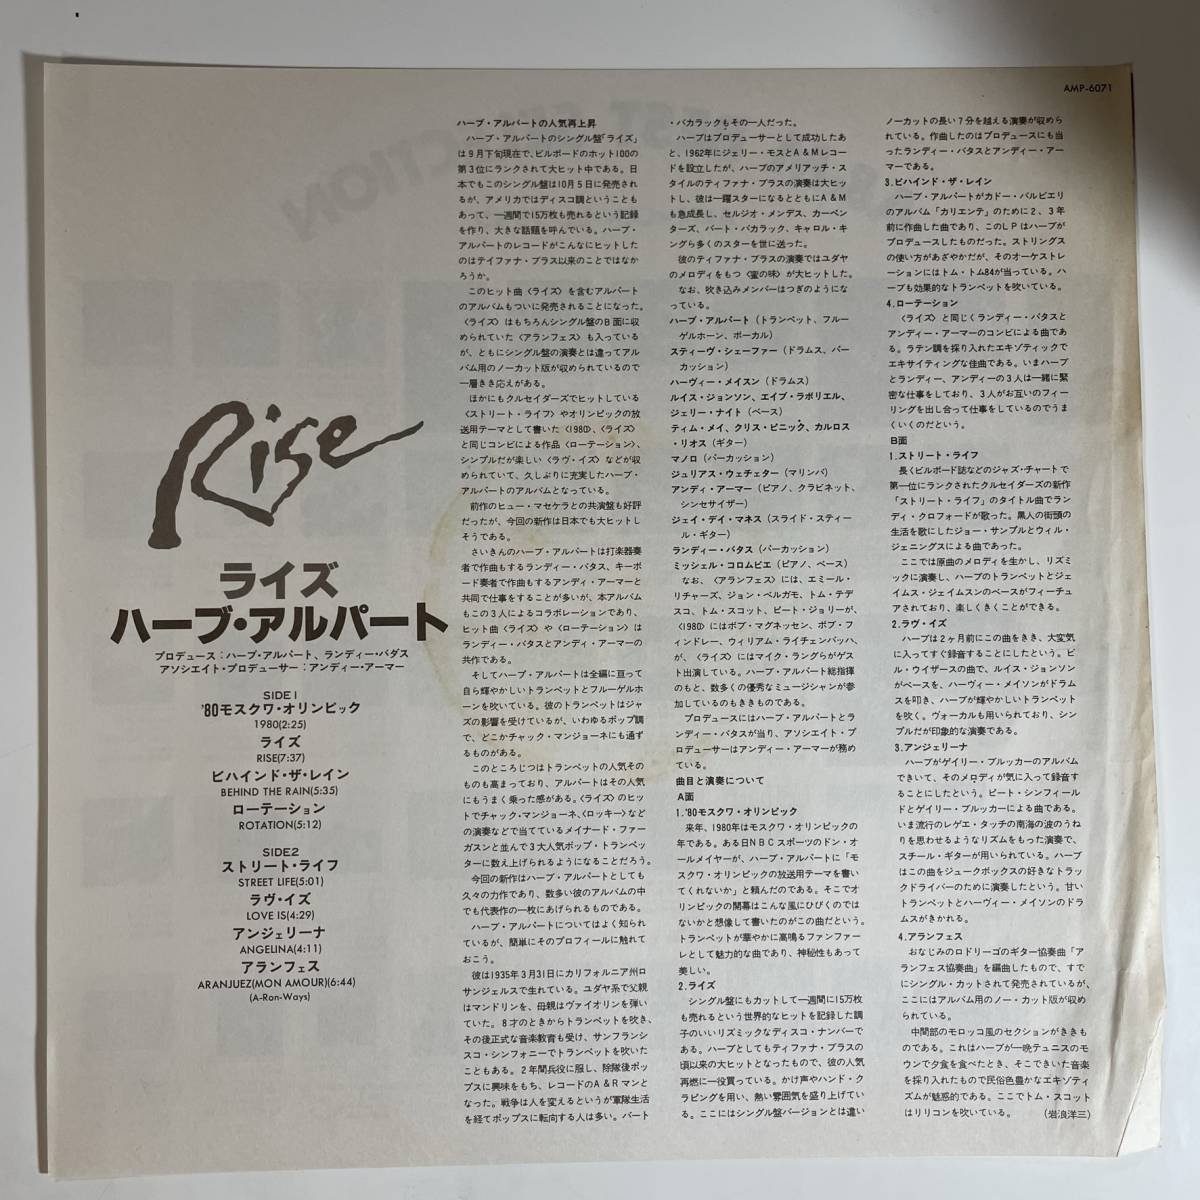 AMP-6071
Rise
ライズ
ハーブ・アルパート
プロデュース：ハーブ・アルパート、ランディー・バダス
アソシエイト・プロデューサー：アンディー・アーマー
SIDE 1
'80モスクワ・オリンピック
1980(2:25)
ライズ
RISE(7:37)
ビハインド・ザ・レイン
BEHIND THE RAIN(5:35)
ローテーション
ROTATION(5:12)
SIDE2
ストリート・ライフ
STREET LIFE(5:01)
ラヴ・イズ
LOVE IS(4:29)
アンジェリーナ
ANGELINA(4:11)
アランフェス
ARANJUEZ(MON AMOUR)(6:44)
(A-Ron-Ways)
ハーブ・アルバートの人気再上昇
ハーブ・アルバートのシングル盤「ライズ」
は9月下旬現在で、ビルボードのホット100の
第3位にランクされて大ヒット中である。日
本でもこのシングル盤は10月5日に発売され
るが、アメリカではディスコ調ということも
あって、一週間で15万枚も売れるという記録
を作り、大きな話題を呼んでいる。ハーブ・
アルバートのレコードがこんなにヒットした
のはティファナ・ブラス以来のことではなか
ろうか。
このヒット曲〈ライズ〉を含むアルバート
のアルバムもついに発売されることになった。
〈ライズ〉はもちろんシングル盤のB面に収
められていた〈アランフェス〉も入っている
が、ともにシングル盤の演奏とは違ってアル
バム用のノーカット版が収められているので
一層きき応えがある。
ほかにもクルセイダーズでヒットしている
〈ストリート・ライフ〉やオリンピックの放
送用テーマとして書いた〈1980〉、〈ライズ〉
と同じコンビによる作品〈ローテーション〉、
シンプルだが楽しい〈ラヴ・イズ〉などが収
められていて、久しぶりに充実したハーブ・
アルバートのアルバムとなっている。
前作のヒュー・マセケラとの共演盤も好評
だったが、今回の新作は日本でも大ヒットし
そうである。
さいきんのハーブ・アルバートは打楽器奏
者で作曲もするランディー・バダス、キーボ
ード奏者で作曲もするアンディ・アーマーと
共同で仕事をすることが多いが、本アルバム
もこの3人によるコラボレーションであり、
ヒット曲〈ライズ〉や〈ローテーション〉は
ランディー・バダスとアンディ・アーマーの
共作である。
そしてハーブ・アルバートは全編に亘って
自ら輝やかしいトランペットとフルーゲルホ
ーンを吹いている。彼のトランペットはジャ
ズの影響を受けているが、いわゆるポップ調
で、どこかチャック・マンジョーネにも通ず
るものがある。
このところじつはトランペットの人気その
ものも高まっており、アルバートはその人気
にもうまく乗った感がある。〈ライズ〉のヒッ
トでチャック・マンジョーネ、〈ロッキー〉など
の演奏などで当てているメイナード・ファー
ガスンと並んで3大人気ポップ・トランペッ
ターに数え上げられるようになることだろう。
今回の新作はハーブ・アルバートとしても
久々の力作であり、数多い彼のアルバムの中
でも代表作の一枚にあげられるものである。
ハーブ・アルバートについてはよく知られ
ているが、簡単にそのプロフィールに触れて
おこう。
彼は1935年3月31日にカリフォルニア州ロ
サンジェルスで生れている。ユダヤ系で父親
はマンドリンを、母親はヴァイオリンを弾い
ていた。8才のときからトランペットを吹き、
その後正式な音楽教育も受け、サンフランシ
スコ・シンフォニーでトランペットを吹いた
こともある。2年間兵役に服し、除隊後ポッ
プスに興味をもち、レコードのA&Rマンと
なった。戦争は人を変えるというが軍隊生活
を経てポップスに転向する人は多い。バート
・バカラックもその一人だった。
ハーブはプロデューサーとして成功したあ
と、1962年にジェリー・モスとA&Mレコー
ドを設立したが、ハーブのアメリアッチ・ス
タイルのティファナ・ブラスの演奏は大ヒッ
トし、彼は一躍スターになるとともにA&M
も急成長し、セルジオ・メンデス、カーペン
ターズ、バート・バカラック、キャロル・キ
ングら多くのスターを世に送った。
彼のティファナ・ブラスの演奏ではユダヤ
のメロディをもつ〈蜜の味〉が大ヒットした。
なお、吹き込みメンバーはつぎのようにな
っている。
ハーブ・アルバート（トランペット、フルー
ゲルホーン、ボーカル）
スティーヴ・シェーファー（ドラムス、パー
カッション）
ハーヴィー・メイスン（ドラムス）
ルイス・ジョンソン、エイブ・ラボリエル、
ジェリー・ナイト（ベース）
ティム・メイ、クリス・ピニック、カルロス
・リオス（ギター）
マノロ（パーカッション）
ジュリアス・ウェチェター（マリンバ）
アンディ・アーマー（ピアノ、クラビネット、
シンセサイザー）
ジェイ・デイ・マネス（スライド・スティー
ル・ギター）
ランディー・バダス（パーカッション）
ミッシェル・コロムビエ（ピアノ、ベース）
なお、〈アランフェス〉には、エミール・
リチャーズ、ジョン・ベルガモ、トム・テデ
スコ、トム・スコット、ピート・ジョリーが、
〈1980〉にはボブ・マグネッセン、ボブ・フ
ィンドレー、ウィリアム・ライチェンバッハ、
が、〈ライズ〉にはマイク・ラングらがゲス
ト出演している。ハーブ・アルバート総指揮
のもと、数多くの優秀なミュージシャンが参
加しているのもききものである。
プロデュースにはハーブ・アルバートとラ
ンディー・バダスが当り、アソシエイト・プ
ロデューサーはアンディー・アーマーが務め
ている。
曲目と演奏について
A面
1.'80モスクワ・オリンピック
来年、1980年はモスクワ・オリンピックの
年である。ある日NBCスポーツのドン・オ
ールメイヤーが、ハーブ・アルバートに「モ
スクワ・オリンピックの放送用テーマを書い
てくれないか」と頼んだのである。そこでオ
リンピックの開幕はこんな風にひびくのでは
ないかと想像して書いたのがこの曲だという。
トランペットが華やかに高鳴るファンファー
レとして魅力的な曲であり、神秘性もあって
美しい。
2.ライズ
シングル盤にもカットして一週間に15万枚
も売れるという世界的なヒットを記録した調
子のいいリズミックなディスコ・ナンバーで
ある。ハーブとしてもティファナ・ブラスの
頃以来の大ヒットとなったもので、彼の人気
再燃に一役買っている。かけ声やハンド・ク
ラッピングを用い、熱い雰囲気を盛り上げてい
る。ここにはシングル盤バージョンとは違い
ノーカットの長い7分を越える演奏が収めら
れている。作曲したのはプロデュースにも当
ったランディー・バダスとアンディー・アー
マーである。
3.ビハインド・ザ・レイン
ハーブ・アルバートがガトー・バルビエリ
のアルバム「カリエンテ」のために2、3年
前に作曲した曲であり、このLPはハーブが
プロデュースしたものだった。ストリングス
の使い方があざやかだが、そのオーケストレ
ーションにはトム・トム84が当っている。ハ
ーブも効果的なトランペットを吹いている。
4.ローテーション
〈ライズ〉と同じくランディー・バダスと
アンディー・アーマーのコンビによる曲であ
る。ラテン調を採り入れたエキゾティックで
エキサイティングな佳曲である。いまハーブ
とランディー、アンディーの3人は一緒に緊
密な仕事をしており、3人がお互いのフィー
リングを出し合って仕事をしているのでうま
くいくのだという。
B面
1.ストリート・ライフ
長くビルボード誌などのジャズ・チャートで
第一位にランクされたクルセイダーズの新作
「ストリート・ライフ」のタイトル曲でラン
ディ・クロフォードが歌った。黒人の街頭の
生活を歌にしたジョー・サンプルとウィル・
ジェニングスによる曲であった。
ここでは原曲のメロディを生かし、リズミ
ックに演奏し、ハーブのトランペットとジェ
イムス・ジェイムスンのベースがフィーチュ
アされており、楽しくきくことができる。
2.ラヴ・イズ
ハーブは2ヶ月前にこの曲をきき、大変気
に入ってすぐ録音することにしたという。ビ
ル・ウイザースの曲で、ルイス・ジョンソン
がベースを、ハーヴィー・メイソンがドラム
スを叩き、ハーブが輝やかしいトランペット
を吹く。ヴォーカルも用いられており、シン
プルだが印象的な演奏である。
3.アンジェリーナ
ハープがゲイリー・ブルッカーのアルバム
できいて、そのメロディが気に入って録音す
ることにしたという。ピート・シンフィール
ドとゲイリー・ブルッカーによる曲である。
いま流行のレゲエ・タッチの南海の波のうね
りを思わせるようなリズムをもった演奏で、
スチール・ギターが用いられている。ハーブ
はこの曲をジュークボックスの好きなトラッ
クドライバーのために演奏したという。甘い
トランペットとハーヴィー・メイソンのドラ
ムスがきかれる。
4.アランフェス
おなじみのロドリーゴのギター協奏曲「ア
ランフェス協奏曲」を編曲したもので、すで
にシングル・カットされて発売されているが、
ここにはアルバム用のノー・カット版が収め
られている。
中間部のモロッコ風のセクションがききも
のである。これはハーブが一晩テュニスのモ
ウンで夕食を食べたとき、そこできいた音楽
を採り入れたもので民俗色豊かなエキゾティ
ズムが魅惑的である。ここでトム・スコット
はリリコンを吹いている。（岩浪洋三）